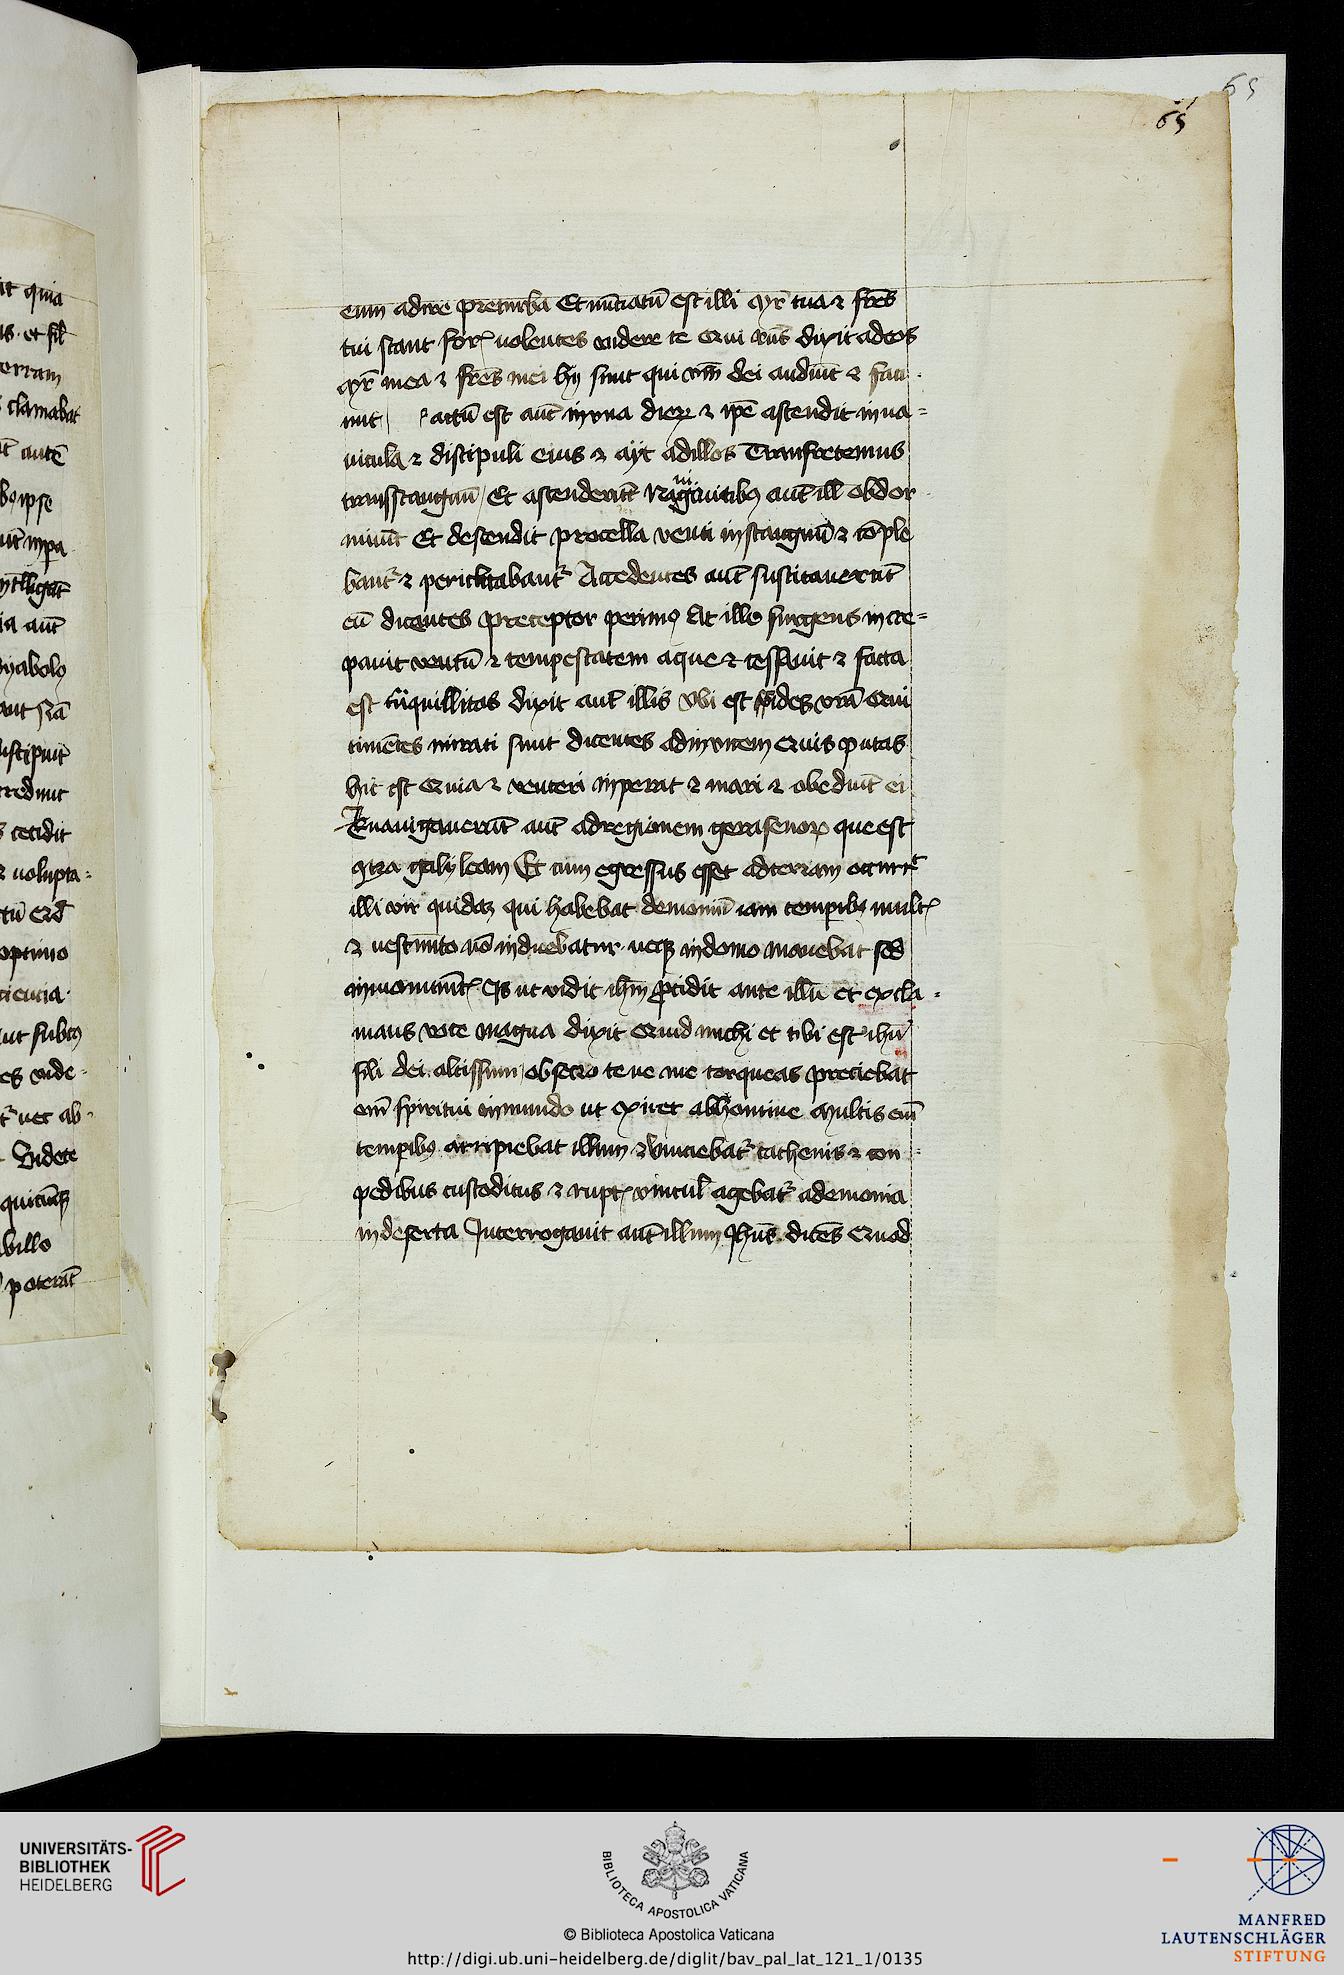 65
65
eum adire pre turba Et nu̅ciatu̅ est illi Mr̅ tua ⁊ fr̅es
tui stant for̅ uolentes videre te Qui ru̅s dixit ad eos
Mr̅ mea ⁊ fr̅es mei hij sunt qui v̅m dei audiu̅t ⁊ faci
unt actu̅ est aut̅ in vna dieꝝ ⁊ ip̅e ascendit in na=
uicula ⁊ discipuli eius ⁊ ayt ad illos Tranfretemus
transstangnu̅ Et ascenderu̅t Nauigantibꝰ aut̅ ill̅ obdor
miuit Et descendit procella venti in stangnu̅ ⁊ co̅ple
bant̅ ⁊ periclitabant̅ Accedentes aut̅ suscitaueru̅t
eu̅ dicentes preceptor perimꝰ At ille surgens incre=
pauit ventu̅ ⁊ tempestatem aque ⁊ cessauit ⁊ facta
est tn̅quillitas dixit aut̅ illis vbi est fides vr̅a Qui
time̅tes mirati sunt dicentes ad inuicem Quis putas
hic est Quia ⁊ venteri inperat ⁊ mari ⁊ obediu̅t ei
Enauigaueru̅t aut̅ ad regionem gerasenoꝝ que est
ꝯtra galijleam Et cum egressus esset ad terram occurr̅t
illi vir quidaꝫ qui habebat demoniu̅ iam temporibꝰ mult̅
⁊ uestim̅to no̅ induebatur neqꝫ in domo manebat sed
in monum̅t̅ Is ut vidit ih̅m p̅cidit ante illu̅ et excla=
mans voce magna dixit Quid michi et tibi est ih̅u
fili dei altissimi obsecro te ne me torqueas preciebat
em̅ spiritui inmundo ut exiret ab homine Multis em̅
temporibꝰ arripiebat illum ⁊ vinciebat̅ cathenis ⁊ con
pedibus custoditus ⁊ rupt̅ vincul̅ agebat̅ a demonia
in deserta Interrogauit aut̅ illum Jhu̅s dice̅s Quod
it quia
et sil
erram
clamabat
aute̅
ipse
inpa
aut̅
dyabolo
credunt
cecidit
⁊ uolupta=
optimo
ciencia
ut subtus
es vide-
nec ab-
Videte
quicu̅qꝫ
poterat̅
UNIVERSITÄTS-
BIBLIOTHEK
HEIDELBERG
BIBLIOTECA APOSTOLICA VATICANA
© Biblioteca Apostolica Vaticana
http://digi.ub.uni-heidelberg.de/diglit/bav_pal_lat_121_1/0135
MANFRED
LAUTENSCHLÄGER
STIFTUNG